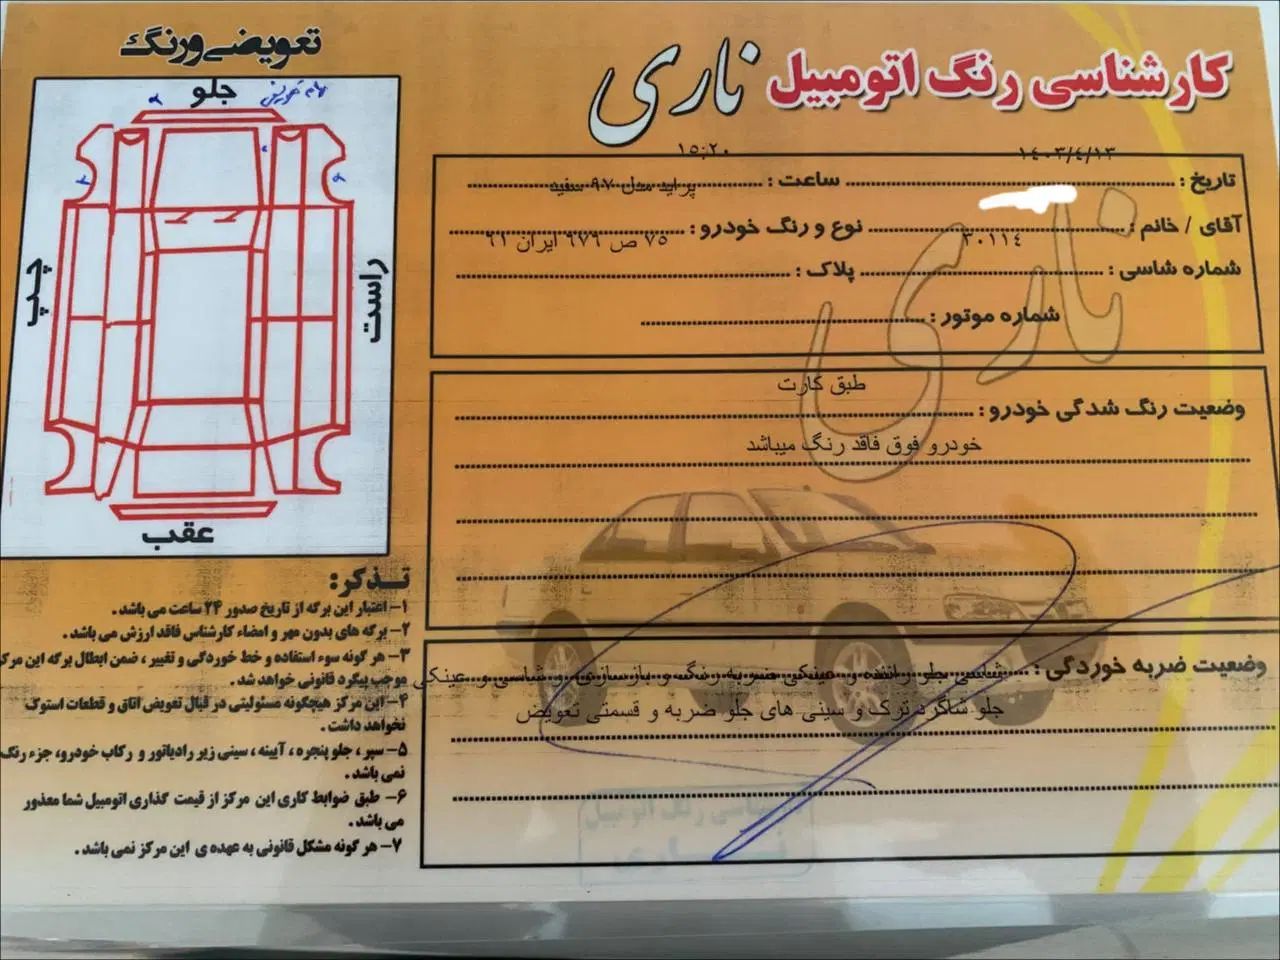 کارشناسی رنگ اتومبیل ناری
تعویضی و رنگ
جلو
چپ
راست
عقب
۱۴۰۳/۴/۱۳
۱۵:۲۰
تاریخ :
ساعت :
پراید مدل ۹۷ سفید
آقای / خانم :
نوع و رنگ خودرو :
۳۰۱۱۴
۷۵ ص ۶۷۶ ایران ۶۱
شماره شاسی :
پلاک :
شماره موتور :
ناری
طبق کارت
وضعیت رنگ شدگی خودرو :
خودرو فوق فاقد رنگ میباشد
وضعیت ضربه خوردگی :
شاسی جلو راننده و عینکی ضربه رنگ و بازسازی و شاسی و عینکی
جلو شاگرد ترک و سینی های جلو ضربه و قسمتی تعویض
تذکر:
۱- اعتبار این برگه از تاریخ صدور ۲۴ ساعت می باشد .
۲- برگه های بدون مهر و امضاء کارشناس فاقد ارزش می باشد .
۳- هر گونه سوء استفاده و خط خوردگی و تغییر ، ضمن ابطال برگه این مرکز
موجب پیگرد قانونی خواهد شد .
۴- این مرکز هیچگونه مسئولیتی در قبال تعویض اتاق و قطعات استوک
نخواهد داشت .
۵- سپر ، جلو پنجره ، آیینه ، سینی زیر رادیاتور و رکاب خودرو، جزء رنگ
نمی باشد .
۶- طبق ضوابط کاری این مرکز از قیمت گذاری اتومبیل شما معذور
می باشد .
۷- هر گونه مشکل قانونی به عهده ی این مرکز نمی باشد .
کارشناسی رنگ اتومبیل
ناری